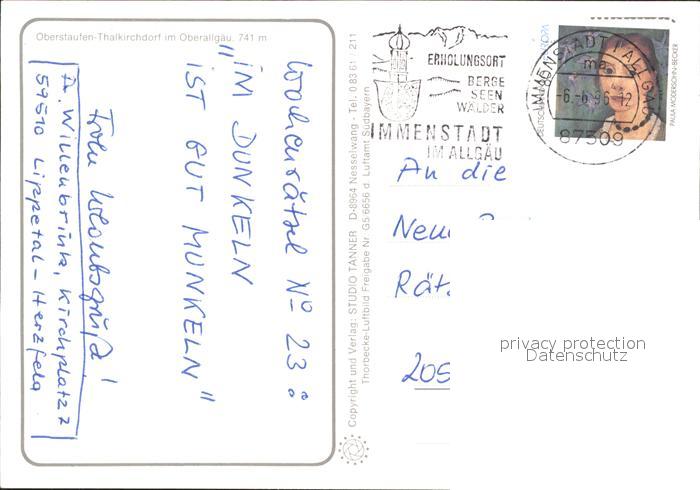 Oberstaufen-Thalkirchdorf im Oberallgäu. 741 m
Wochenrätsel No 23:
"IM DUNKELN
IST GUT MUNKELN"
Frohen Urlaubsgruß!
A. Willenbrink, Kirchplatz 7
59510 Lippetal-Herzfeld
Copyright und Verlag: STUDIO TANNER D-8964 Nesselwang - Tel. 0 83 61 / 211
Thorbecke-Luftbild Freigabe Nr. G5 6656 d. Luftamt Südbayern
ERHOLUNGSORT
BERGE
SEEN
WÄLDER
IMMENSTADT
IM ALLGÄU
IMMENSTADT I. ALLGÄU
ma
-6.-6.96-12
87509
EUROPA
PAULA MODERSOHN-BECKER
An die
Neue
Rät
205
privacy protection
Datenschutz